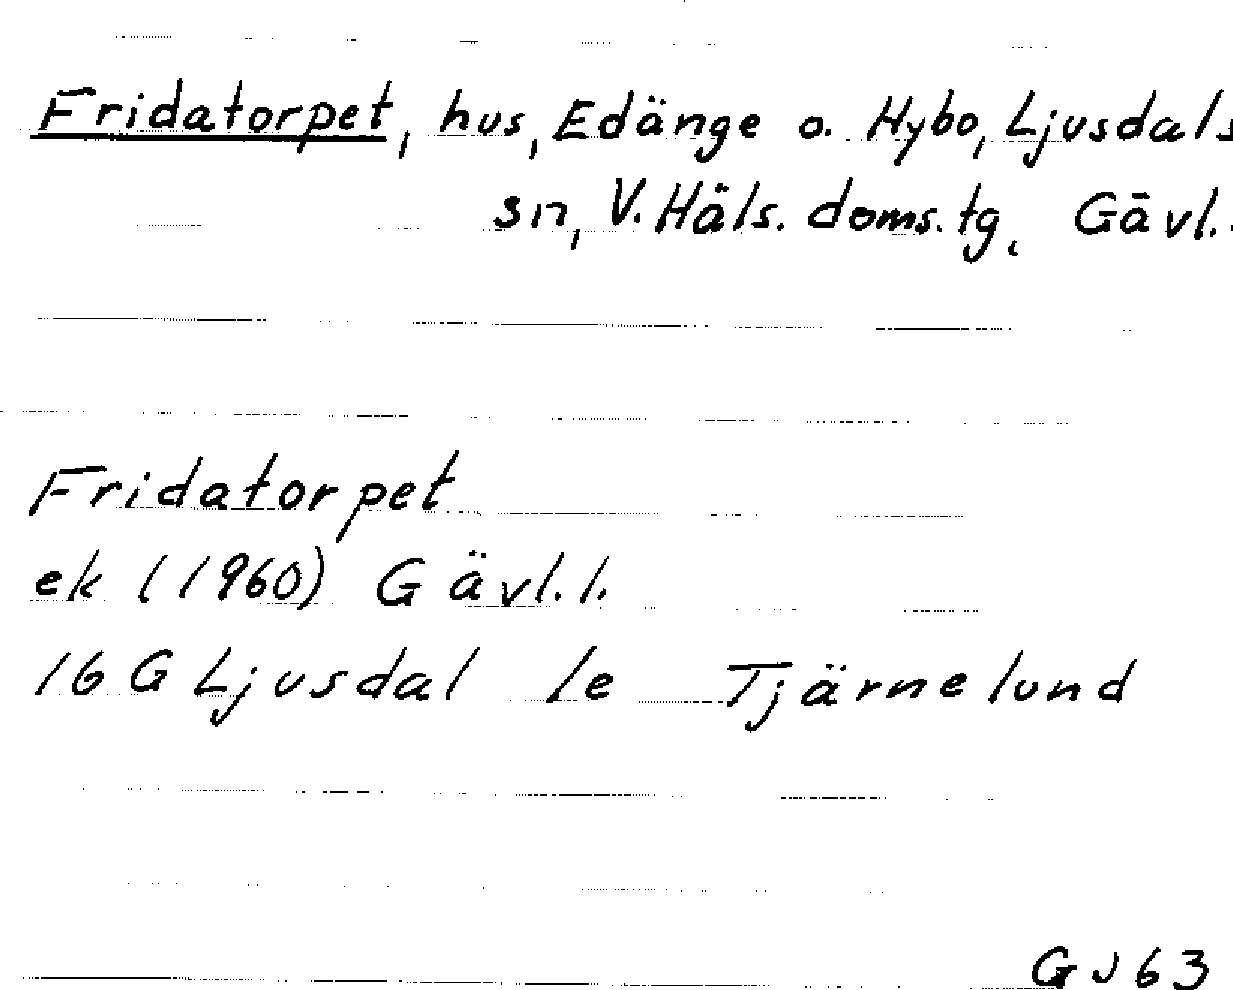 Fridatorpet, hus, Edänge o. Hybo, Ljusdals
sn, V. Häls. doms. tg, Gävl.
Fridatorpet
ek (1960) Gävl. l.
16 G Ljusdal 1e Tjärnelund
GJ 63